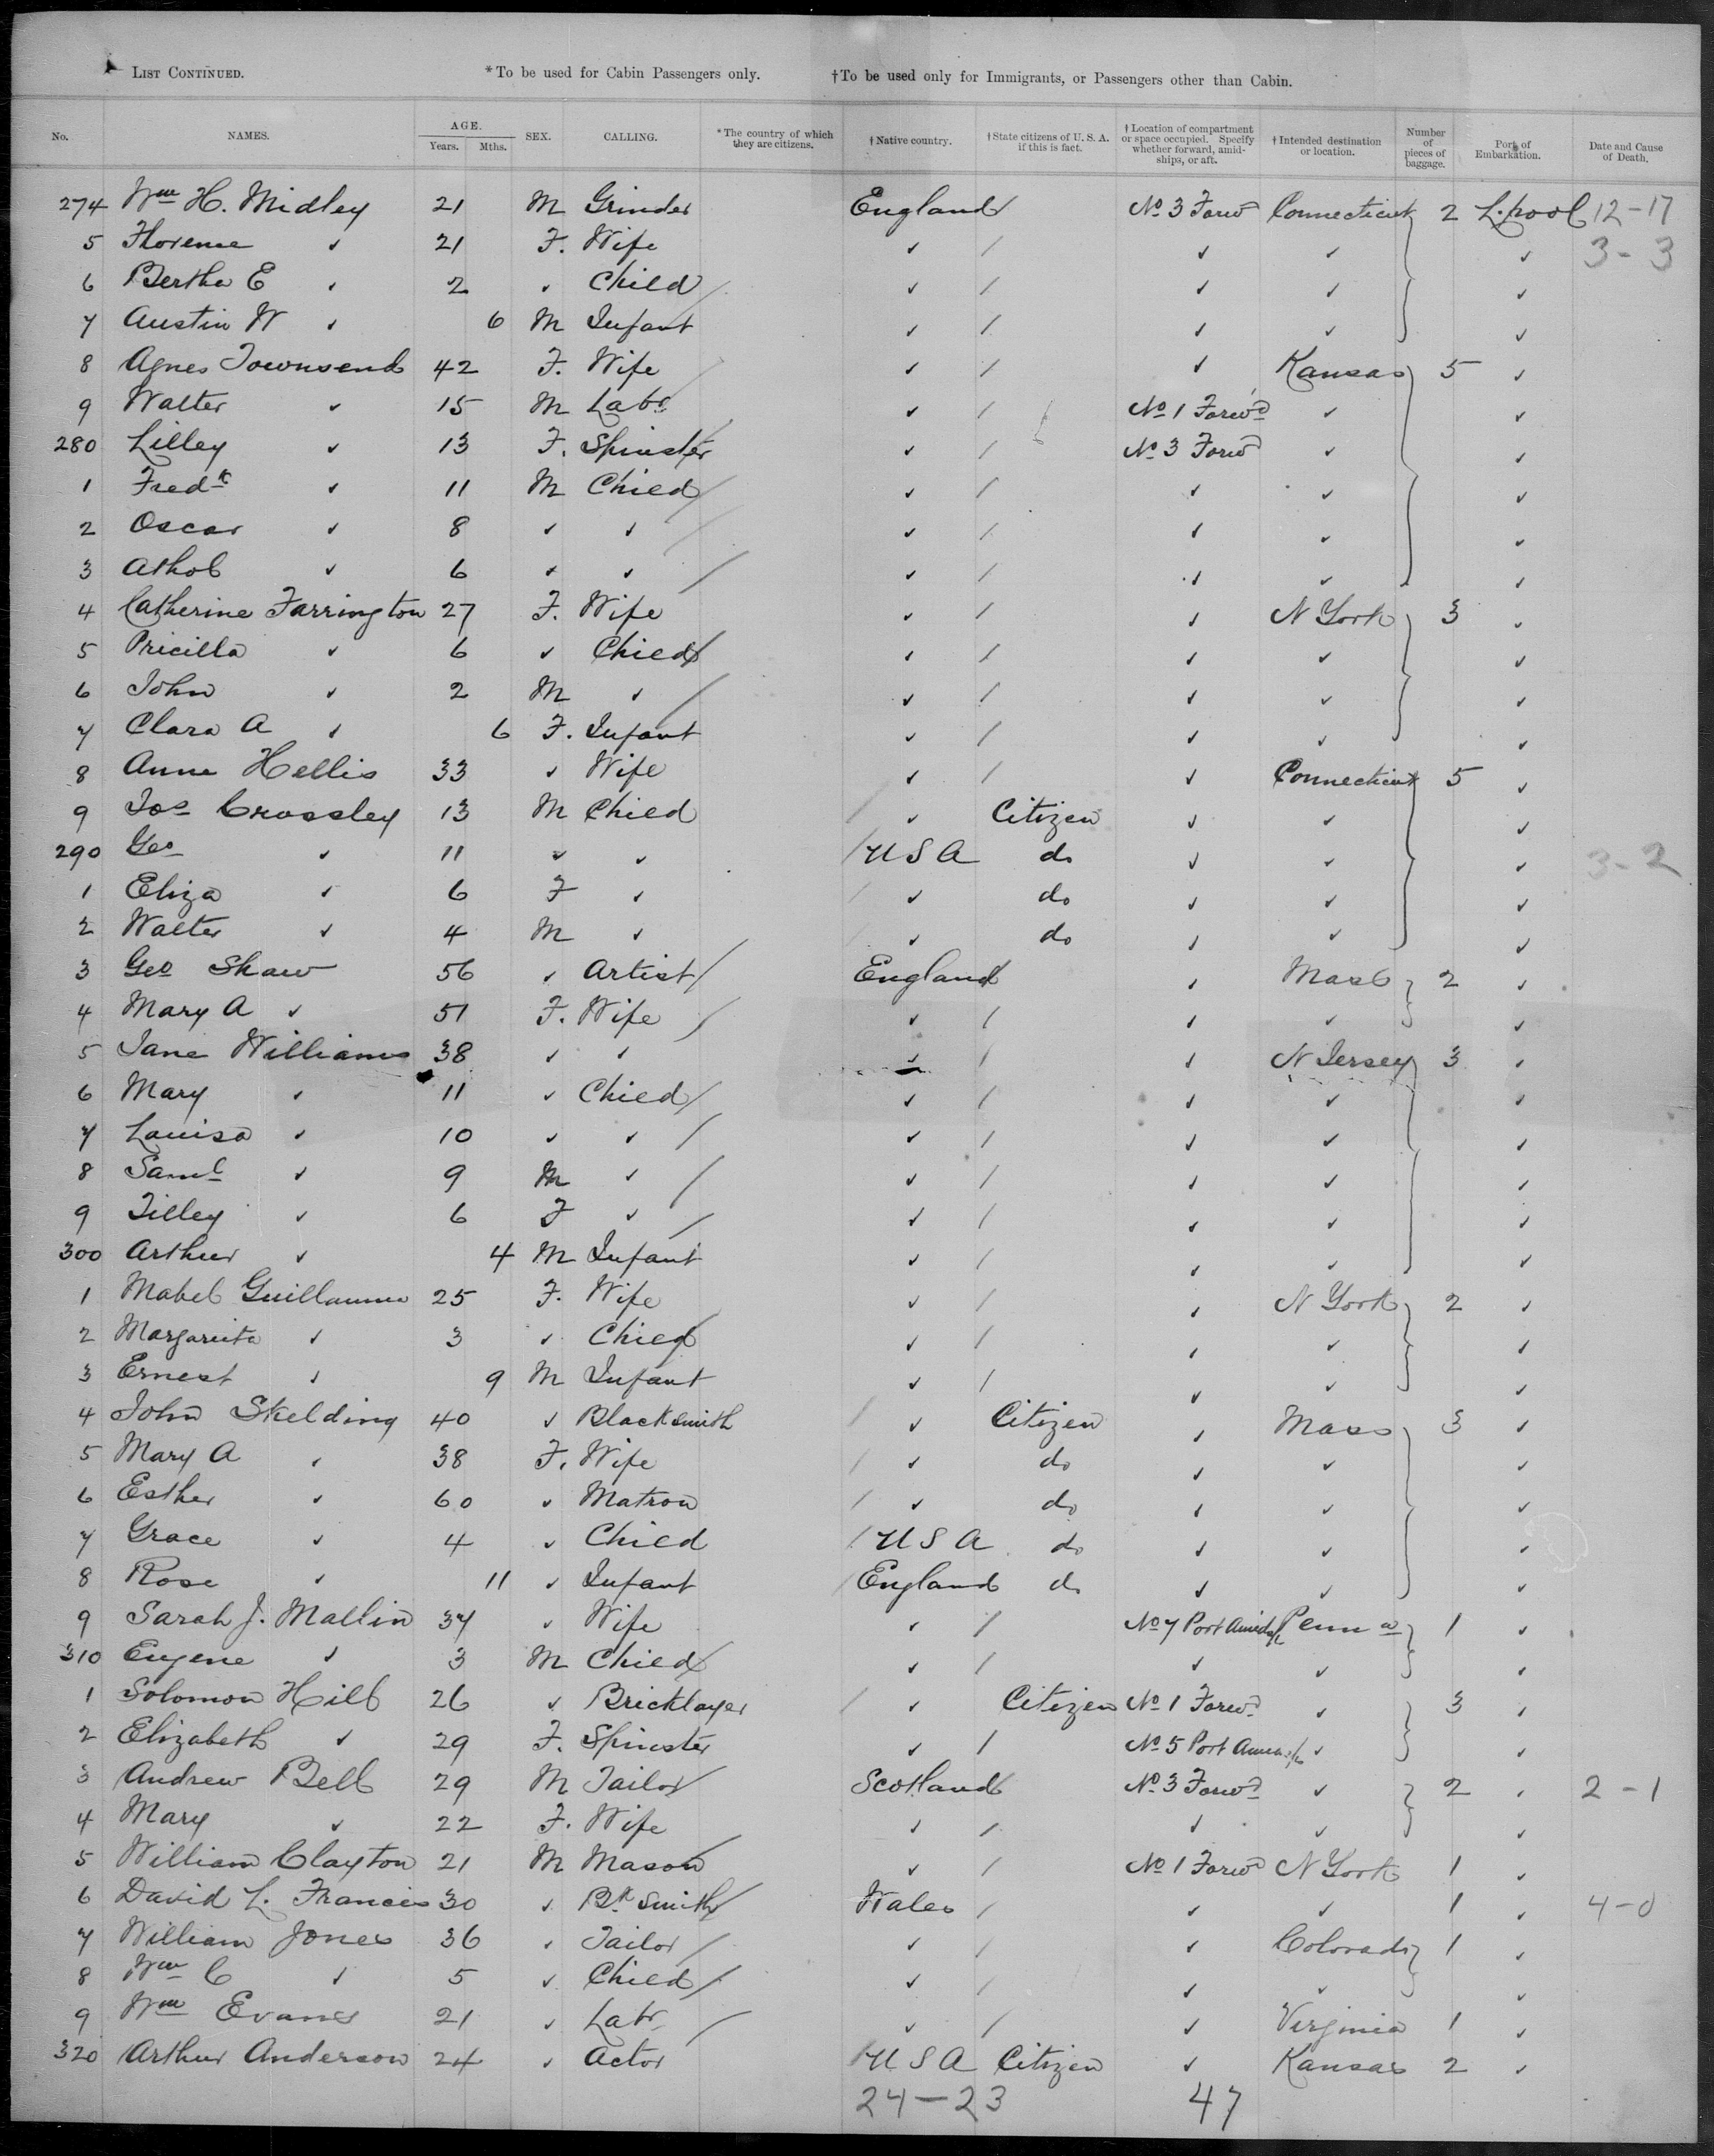 LIST CONTINUED. *To be used for Cabin Passengers only. †To be used only for Immigrants, or Passengers other than Cabin.
No. NAMES. AGE. Years. Mths. SEX. CALLING. *The country of which they are citizens. †Native country. †State citizens of U. S. A. if this is fact. †Location of compartment or space occupied. Specify whether forward, amidships, or aft. †Intended destination or location. Number of pieces of baggage. Port of Embarkation. Date and Cause of Death.
274 Wm H. Midley 21 M Grinder England / No 3 Forwd Connecticut 2 L.pool 12-17
5 Florence ✓ 21 F. Wife ✓ / ✓ ✓ ✓ 3-3
6 Bertha E ✓ 2 ✓ Child / ✓ / ✓ ✓ ✓
7 Austin W ✓ 6 M Infant ✓ / ✓ ✓ ✓
8 Agnes Townsend 42 F. Wife / ✓ / ✓ Kansas 5 ✓
9 Walter ✓ 15 M Labr / ✓ / No 1 Forwd ✓ ✓
280 Lilley ✓ 13 F. Spinster ✓ / No 3 Forwd ✓ ✓
1 Fredk ✓ 11 M Child / ✓ / ✓ ✓ ✓
2 Oscar ✓ 8 ✓ ✓ / ✓ / ✓ ✓ ✓
3 Athol ✓ 6 ✓ ✓ / ✓ / ✓ ✓ ✓
4 Catherine Farrington 27 F. Wife ✓ / ✓ N York 3 ✓
5 Pricilla ✓ 6 ✓ Child / ✓ / ✓ ✓ ✓
6 John ✓ 2 M ✓ / ✓ / ✓ ✓ ✓
7 Clara A ✓ 6 F. Infant ✓ / ✓ ✓ ✓
8 Anne Hellis 33 ✓ Wife ✓ / ✓ Connecticut 5 ✓
9 Jos Crossley 13 M Child / ✓ Citizen ✓ ✓ ✓
290 Geo ✓ 11 ✓ ✓ / U S A do ✓ ✓ ✓ 3-2
1 Eliza ✓ 6 F ✓ / ✓ do ✓ ✓ ✓
2 Walter ✓ 4 M ✓ / ✓ do ✓ ✓ ✓
3 Geo Shaw 56 ✓ Artist / England / ✓ Mass 2 ✓
4 Mary A ✓ 51 F. Wife / ✓ / ✓ ✓ ✓
5 Jane Williams 38 ✓ ✓ ✓ / ✓ N Jersey 3 ✓
6 Mary ✓ 11 ✓ Child / ✓ / ✓ ✓ ✓
7 Louisa ✓ 10 ✓ ✓ / ✓ / ✓ ✓ ✓
8 Saml ✓ 9 M ✓ / ✓ / ✓ ✓ ✓
9 Tilley ✓ 6 F ✓ / ✓ / ✓ ✓ ✓
300 Arthur ✓ 4 M Infant ✓ / ✓ ✓ ✓
1 Mabel Guillaume 25 F. Wife ✓ / ✓ N York 2 ✓
2 Margarita ✓ 3 ✓ Child / ✓ / ✓ ✓ ✓
3 Ernest ✓ 9 M Infant ✓ / ✓ ✓ ✓
4 John Skelding 40 ✓ Blacksmith / ✓ Citizen ✓ Mass 3 ✓
5 Mary A ✓ 38 F. Wife / ✓ do ✓ ✓ ✓
6 Esther ✓ 60 ✓ Matron / ✓ do ✓ ✓ ✓
7 Grace ✓ 4 ✓ Child / U S A do ✓ ✓ ✓
8 Rose ✓ 11 ✓ Infant / England do ✓ ✓ ✓
9 Sarah J. Mallin 34 ✓ Wife ✓ / No 7 Port Amids Penna 1 ✓
310 Eugene ✓ 3 M Child / ✓ / ✓ ✓ ✓
1 Solomon Hill 26 ✓ Bricklayer / ✓ Citizen No 1 Forwd ✓ 3 ✓
2 Elizabeth ✓ 29 F. Spinster ✓ / No 5 Port Amids ✓ ✓
3 Andrew Bell 29 M Tailor / Scotland / No 3 Forwd ✓ 2 ✓ 2-1
4 Mary ✓ 22 F. Wife ✓ / ✓ ✓ ✓
5 William Clayton 21 M Mason / ✓ / No 1 Forwd N York 1 ✓
6 David L. Francis 30 ✓ Bk Smith / Wales / ✓ ✓ 1 ✓ 4-0
7 William Jones 36 ✓ Tailor / ✓ / ✓ Colorado 1 ✓
8 Wm C ✓ 5 ✓ Child / ✓ / ✓ ✓ ✓
9 Wm Evans 21 ✓ Labr / ✓ / ✓ Virginia 1 ✓
320 Arthur Anderson 24 ✓ Actor / U S A Citizen ✓ Kansas 2 ✓
24-23 47